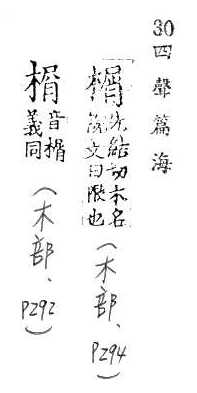 30四聲篇海
榍先結切木名
說文曰限也(木部、P294)
音榍
義同(木部、P292)